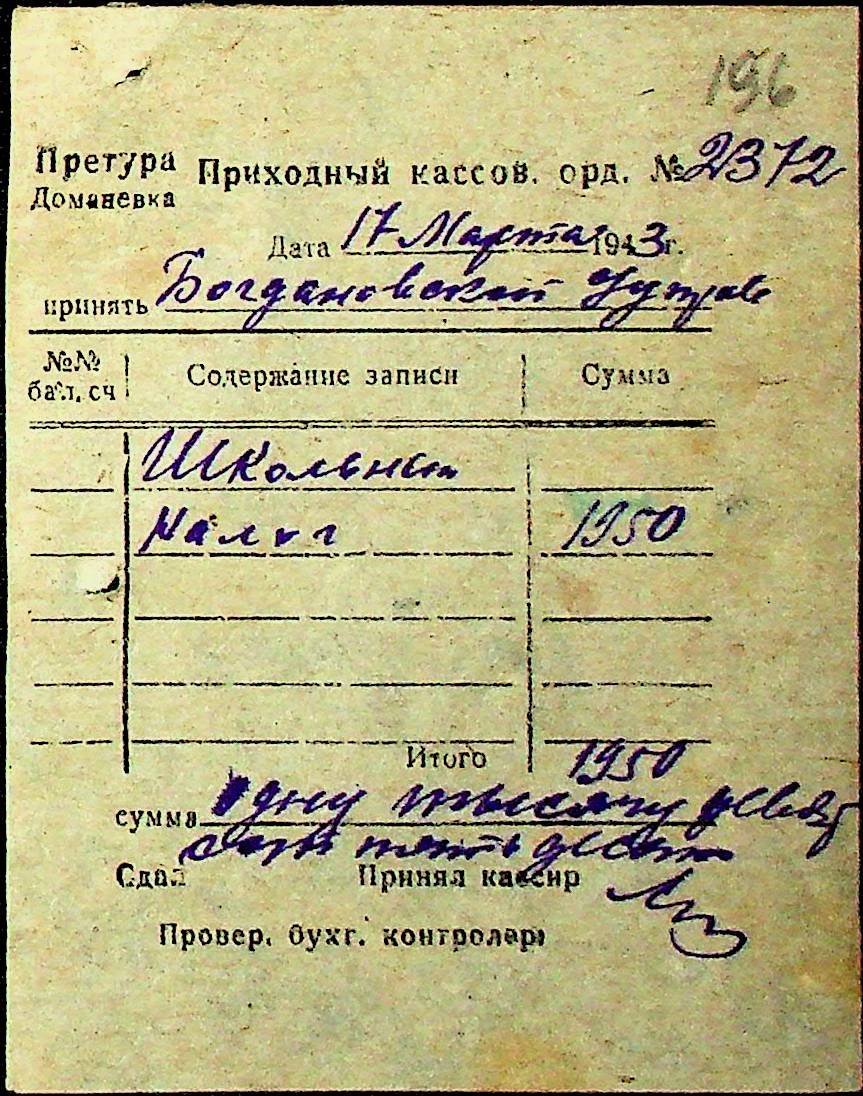 196
Претура Приходный кассов. орд. № 2372
Доманевка
Дата 17 Марта 1943 г.
принять Богдановской
№№ бал. сч Содержание записи Сумма
Школьный
Налог 1950
Итого 1950
сумма одну тысячу девять
сот пятьдесят
Сдал Принял кассир
Провер. бухг. контролер